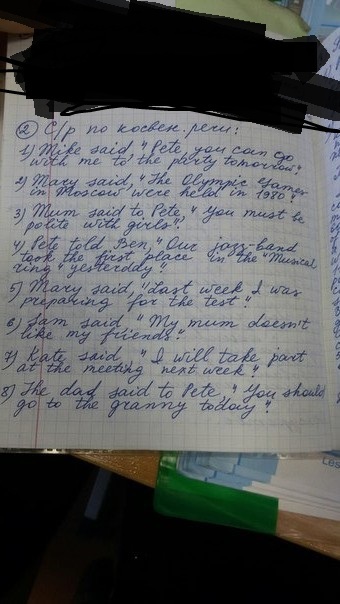 ② С/р по косвен. речи:
1) Mike said, "Pete, you can go
with me to the party tomorrow".
2) Mary said, "The Olympic Games
in Moscow were held in 1980".
3) Mum said to Pete, "You must be
polite with girls".
4) Pete told Ben, "Our jazz-band
took the first place in the "Musical
ring" yesterday".
5) Mary said, "Last week I was
preparing for the test".
6) Sam said "My mum doesn't
like my friends".
7) Kate said, "I will take part
at the meeting next week".
8) The dad said to Pete, "You should
go to the granny today".